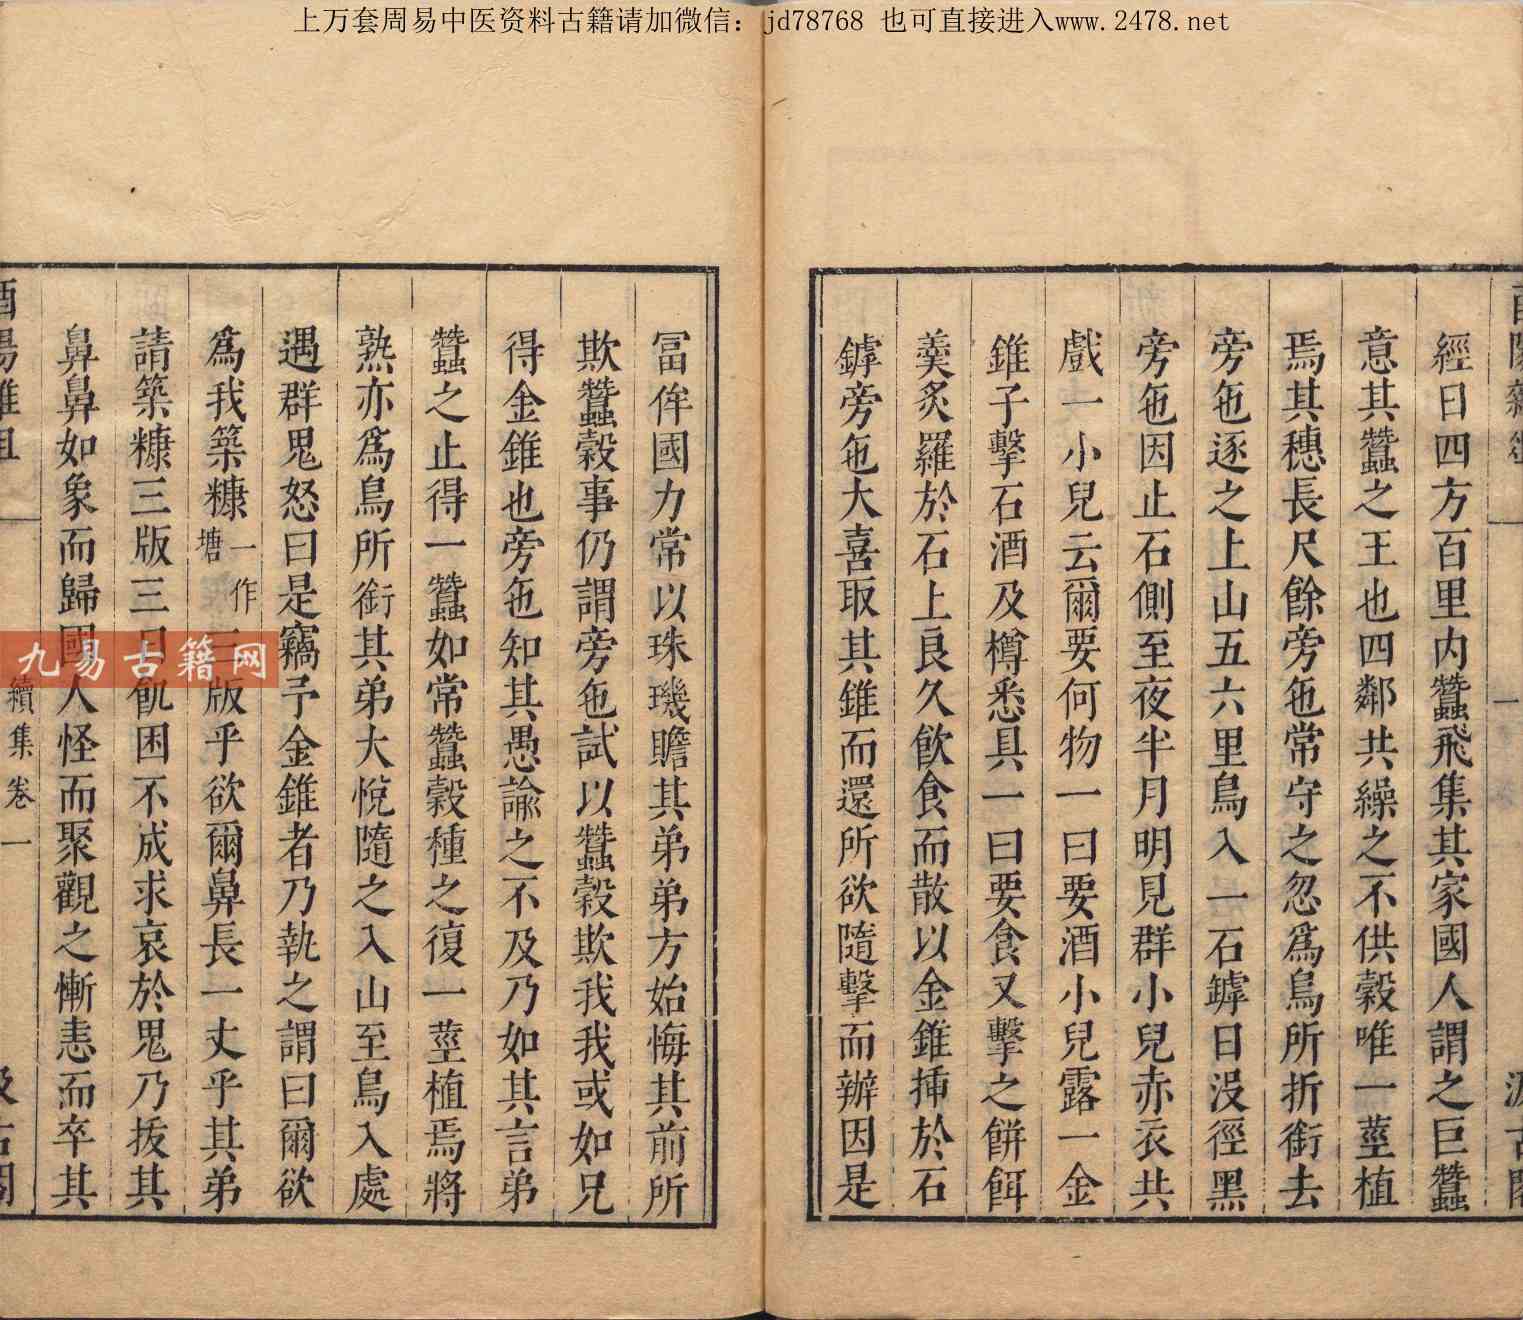 上万套周易中医资料古籍请加微信：jd78768 也可直接进入www.2478.net
經日四方百里内蠶飛集其家國人謂之巨蠶
意其蠶之王也四鄰共繰之不供穀唯一莖植
焉其穗長尺餘旁㐌常守之忽爲鳥所折銜去
旁㐌逐之上山五六里鳥入一石罅日没徑黑
旁㐌因止石側至夜半月明見群小兒赤衣共
戲一小兒云爾要何物一曰要酒小兒露一金
錐子擊石酒及樽悉具一曰要食又擊之餅餌
羹炙羅於石上良久飲食而散以金錐挿於石
罅旁㐌大喜取其錐而還所欲隨擊而辦因是
冨侔國力常以珠璣贍其弟弟方始悔其前所
欺蠶穀事仍謂旁㐌試以蠶穀欺我我或如兄
得金錐也旁㐌知其愚諭之不及乃如其言弟
蠶之止得一蠶如常蠶穀種之復一莖植焉將
熟亦爲鳥所銜其弟大悅隨之入山至鳥入處
遇群鬼怒曰是竊予金錐者乃執之謂曰爾欲
爲我築糠一作塘三版乎欲爾鼻長一丈乎其弟
請築糠三版三日飢困不成求哀於鬼乃拔其
鼻鼻如象而歸國人怪而聚觀之慚恚而卒其
續集卷一
九易古籍网